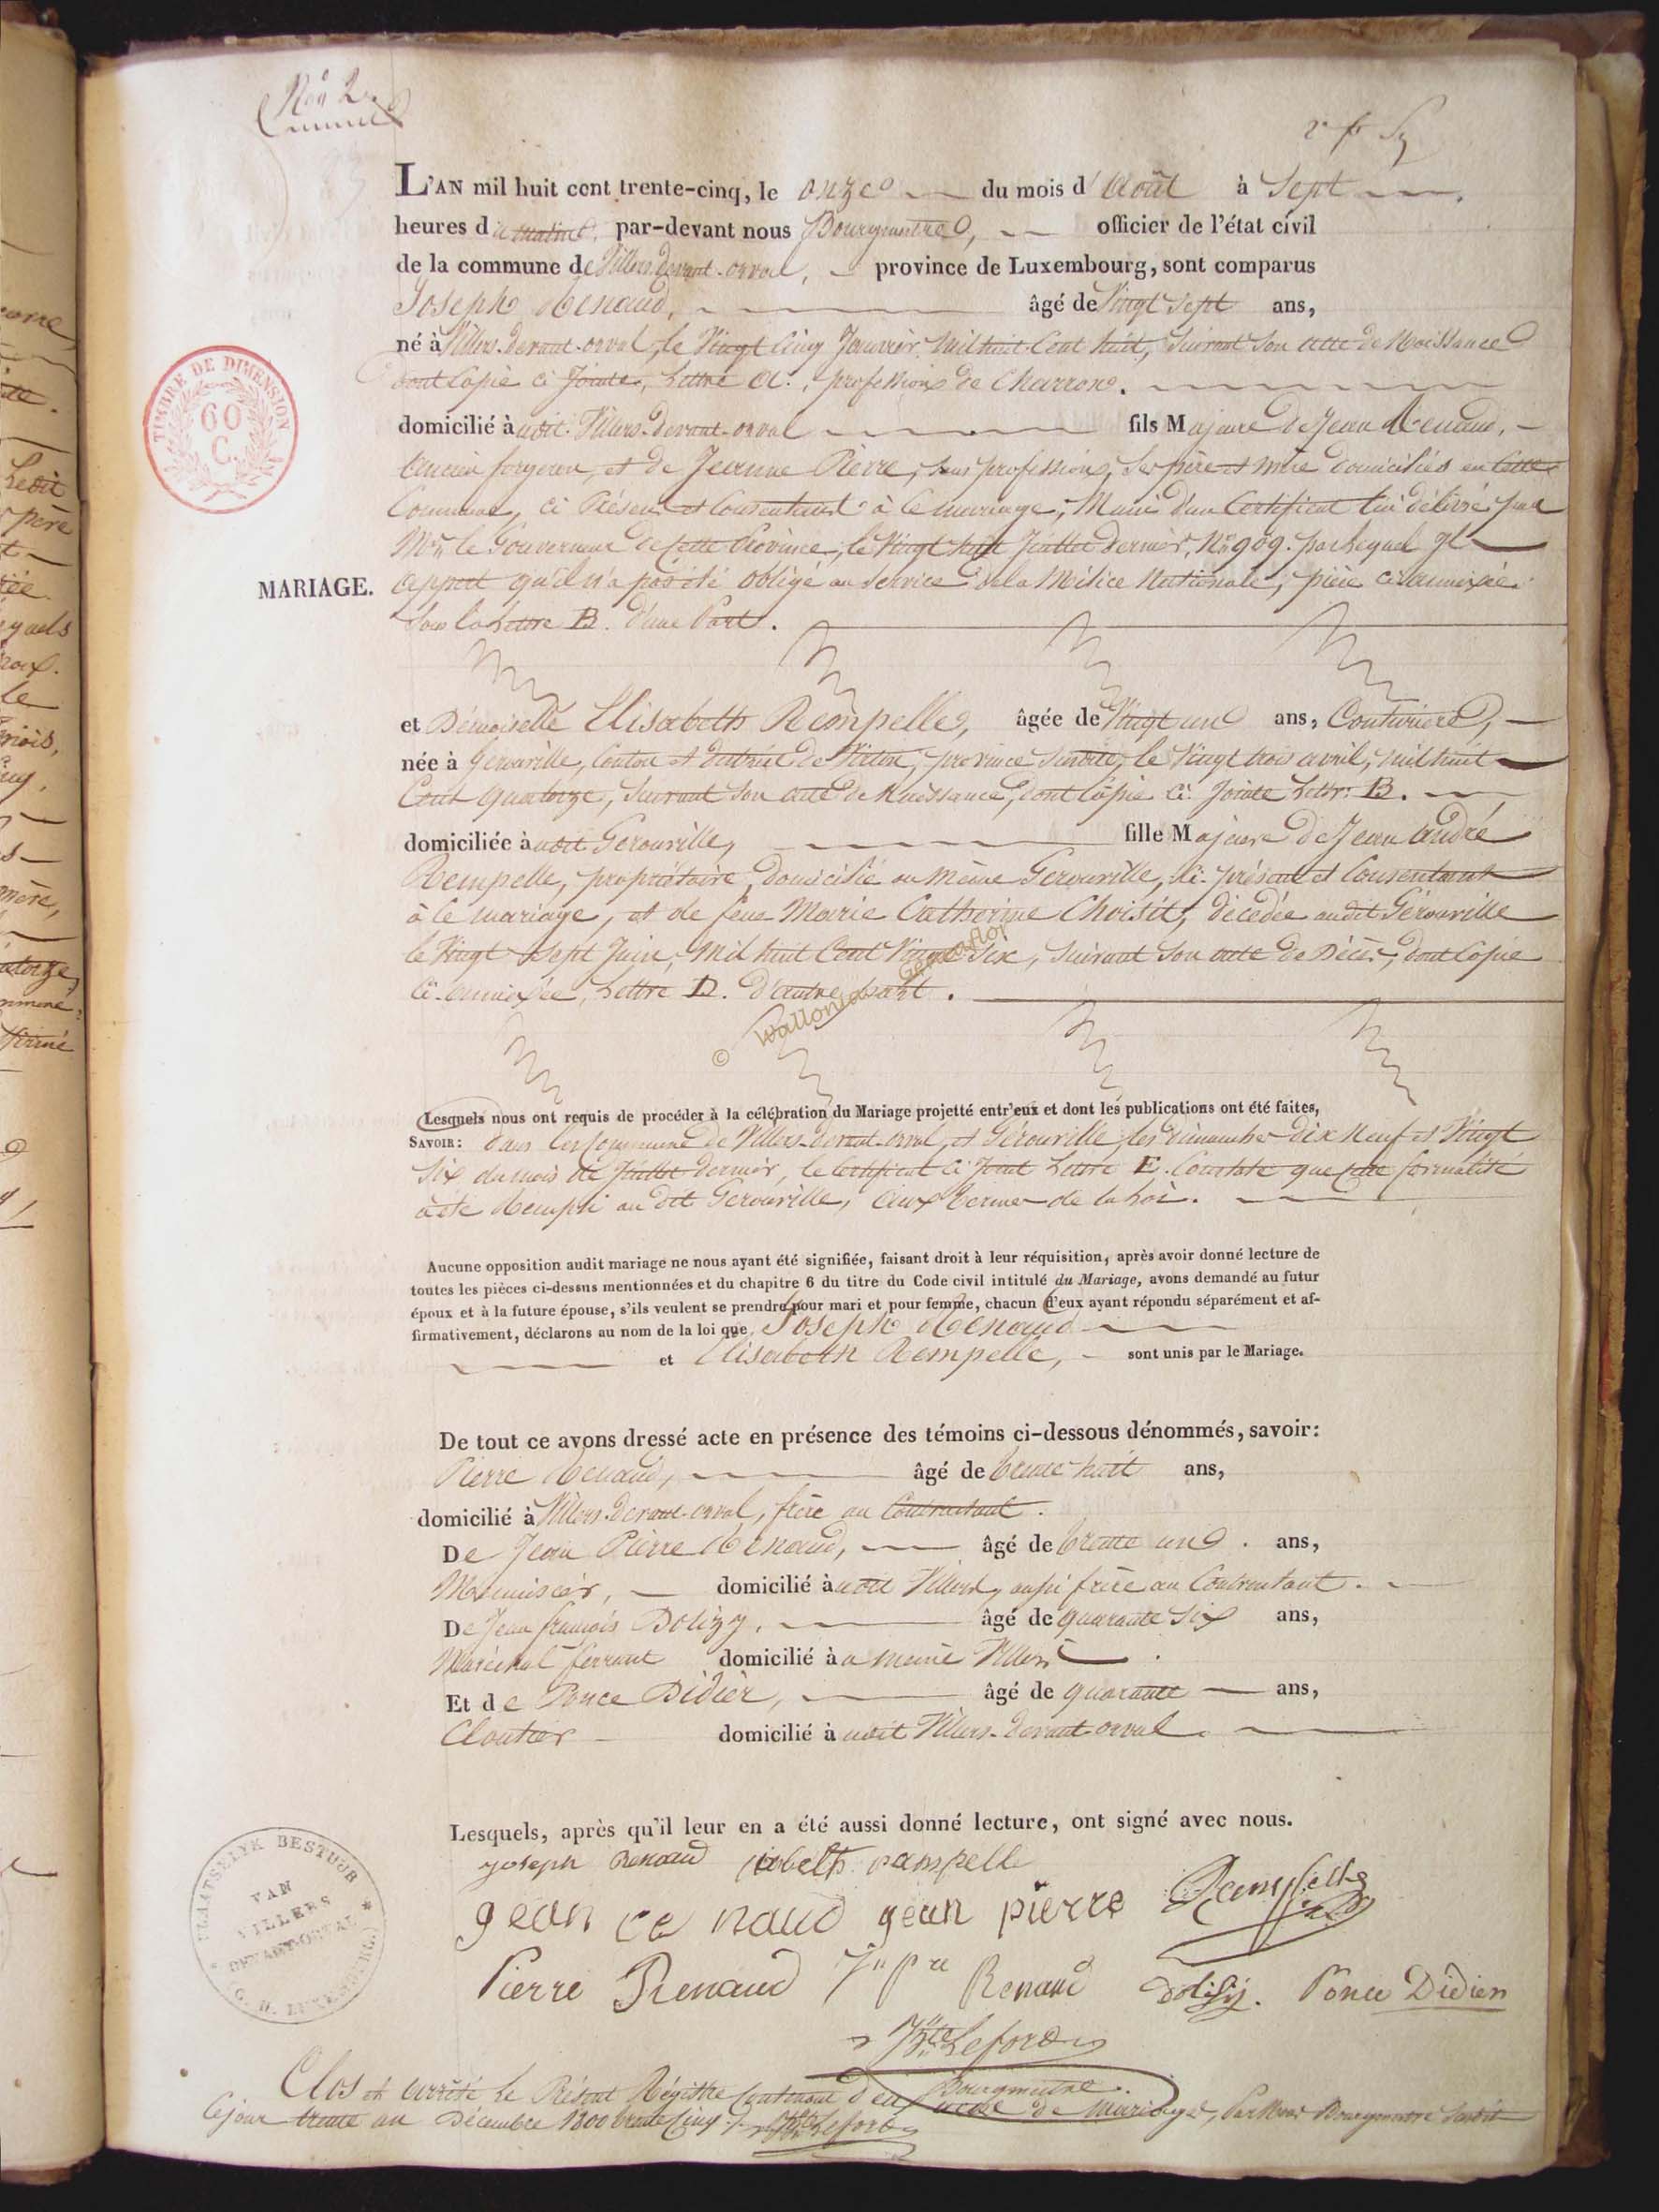 Nº 2.
L'AN mil huit cent trente-cinq, le onze du mois d'Août à Sept
heures du matin, par-devant nous Bourgmestre, officier de l'état civil
de la commune de Villers-devant-orval, province de Luxembourg, sont comparus
Joseph Renaud, âgé de Vingt Sept ans,
né à Villers-devant-orval, le Vingt Cinq Janvier mil huit Cent huit, suivant son acte de Naissance
dont Copie ci Jointe, Lettre A., profession de Charron.
domicilié à udit Villers-devant-orval fils Majeure de Jean Renaud,
ancien forgeron, et de Jeanne Pierre, sans profession, ses père et mère domiciliés en Cette
Commune, ci Présent et Consentant à Ce mariage; Muni d'un Certificat lui délivré par
Mr. le Gouverneur de cette Province, le Vingt huit Juillet dernier, Nº 909. par Lequel Jl
MARIAGE.
appert qu'il n'a pas été obligé au Service de la Milice Nationale, pièce ci annexée
Sous la Lettre B. d'une Part.
et Démoiselle Elisabeth Rempelle, âgée de Vingt un ans, Couturière,
née à Gerouville, Canton et district de Virton, province susdite, le Vingt trois avril, mil huit
Cent quatorze, Suivant Son acte de Naissance, dont Copie Ci Jointe Lettr: B.
domiciliée à udit Gerouville, fille Majeure de Jean André
Rempelle, propriétaire, domicilié au même Gerouville, ci-présent et Consentant
à Ce mariage, et de feue Marie Catherine Choisit, décédée audit Gérouville
le Vingt Sept Juin, Mil huit Cent Vingt Six, Suivant Son acte de Décès, dont Copie
ci-annexée, Lettre D. d'autre part.
© Wallonia Geneaflor
Lesquels nous ont requis de procéder à la célébration du Mariage projetté entr'eux et dont les publications ont été faites,
SAVOIR: dans les Commune de Villers-devant-orval, et Gérouville, les dimanches dix Neuf et Vingt
Six du mois de Juillet dernier, le Certificat Ci Joint Lettre E. Constate que cette formalité
a été Rempli au dit Gerouville, aux termes de la Loi.
Aucune opposition audit mariage ne nous ayant été signifiée, faisant droit à leur réquisition, après avoir donné lecture de
toutes les pièces ci-dessus mentionnées et du chapitre 6 du titre du Code civil intitulé du Mariage, avons demandé au futur
époux et à la future épouse, s'ils veulent se prendre pour mari et pour femme, chacun d'eux ayant répondu séparément et af-
firmativement, déclarons au nom de la loi que Joseph Renaud
et Elisabeth Rempelle, sont unis par le Mariage.
De tout ce avons dressé acte en présence des témoins ci-dessous dénommés, savoir:
Pierre Renaud, âgé de trente huit ans,
domicilié à Villers-devant-orval, frère au Contractant.
De Jean Pierre Renaud, âgé de trente un. ans,
Menuisier, domicilié à udit Villers, aussi frère au Contractant.
De Jean françois Dolizy, âgé de quarante Six ans,
Maréchal ferrant domicilié à u meme Villers.
Et de Ponce Didier, âgé de quarante ans,
Cloutier domicilié à udit Villers-devant-orval
Lesquels, après qu'il leur en a été aussi donné lecture, ont signé avec nous.
joseph Renaud isabelth rampelle
gean re naud gean pierre Rempelle
Pierre Renaud Jn Pre Renaud dolisy. Ponce Didier
Lefort
Bourgmestre.
Clos et arrêté Le Présent Régistre Contenant deux acte de Mariage, Par Nous Bourgmestre Susdit
Cejour trente un Décembre 1800 trente Cinq. Lefort
TIMBRE DE DIMENSION
60
C.
PLAATSELYK BESTUUR
VAN
VILLERS
DEVANT-ORVAL
(G. H. LUXEMBURG)